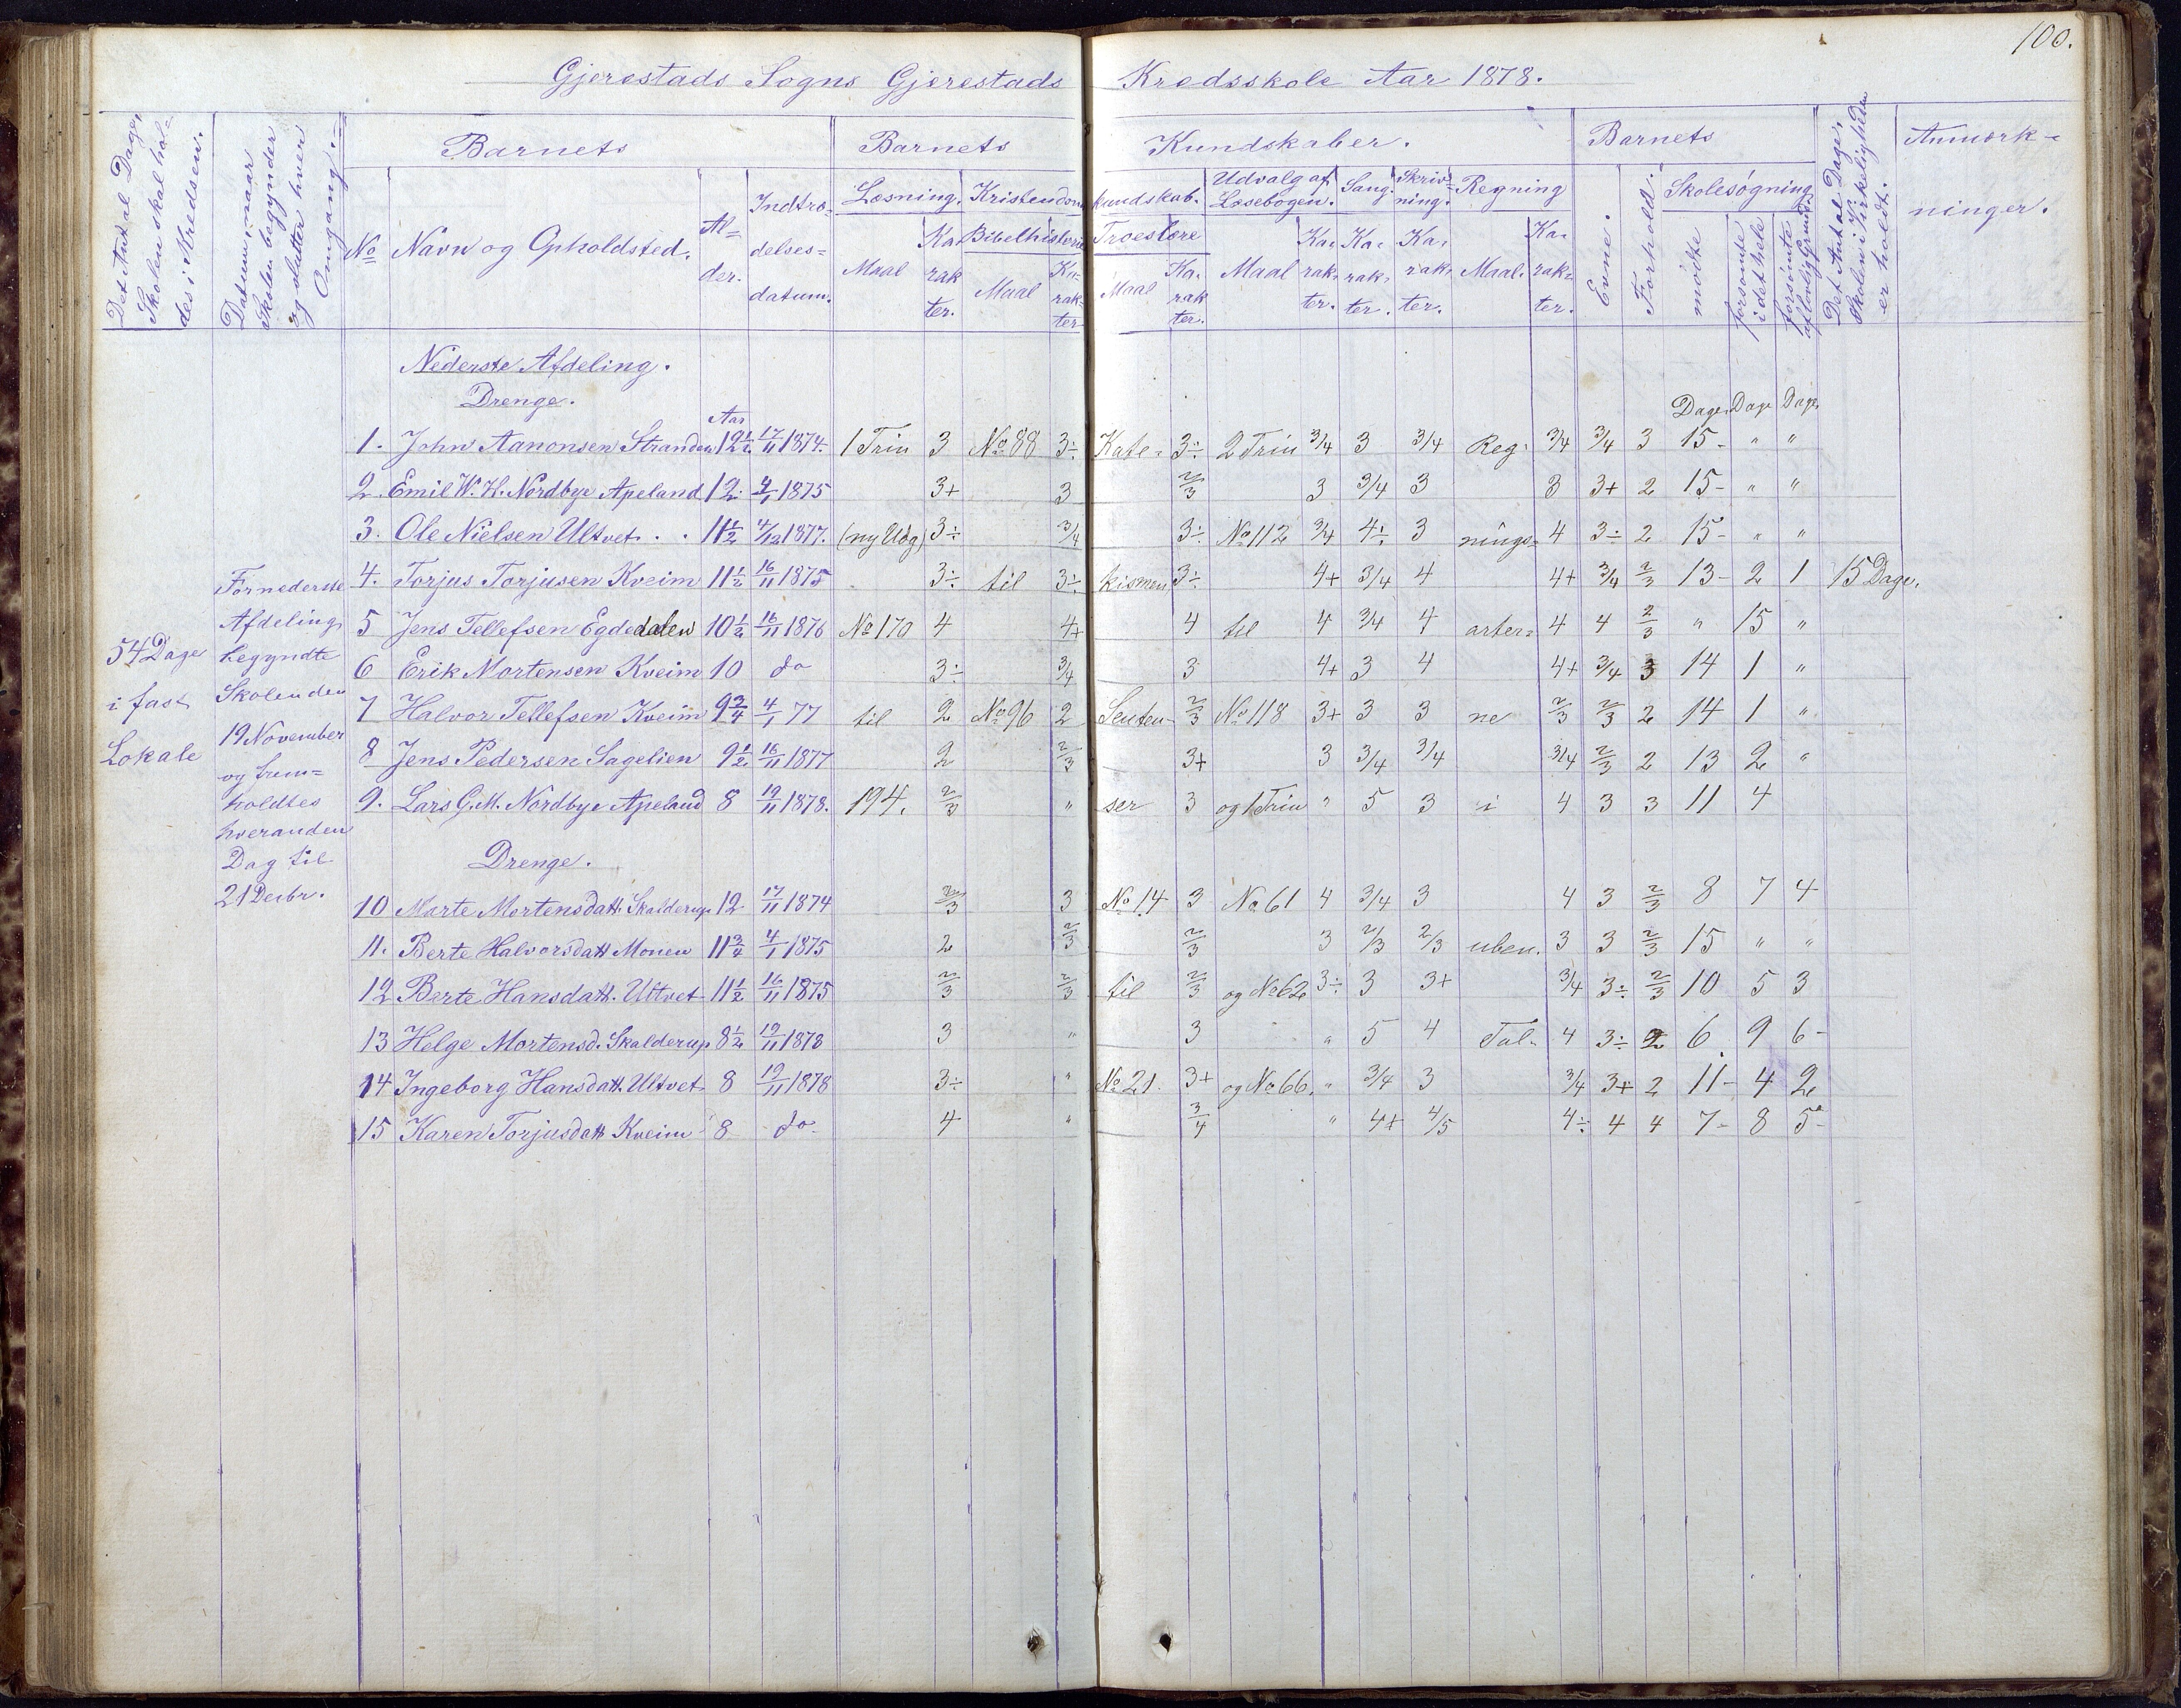 100.
Gjerestads Sogns Gjerestads Kredsskole Aar 1878.
Det Antal Dage, Skolen skal holdes i Kredsen.
Datum, naar Skolen begynder og slutter hver Omgang.
Barnets
Barnets Kundskaber.
Barnets
Det Antal Dage, Skolen i Virkeligheden er holdt.
Anmærkninger.
No
Navn og Opholdsted.
Alder.
Indtrædelsesdatum.
Læsning. Maal Karakter.
Kristendomskundskab.
Bibelhistorie Maal Karakter
Troeslære Maal Karakter.
Udvalg af Læsebogen. Maal Karakter.
Sang. Karakter.
Skrivning. Karakter.
Regning Maal. Karakter.
Evne.
Forhold.
Skolesøgning
mødte
forsømte i det hele
forsømte af lovlig Grund
54 Dage
i fast
Lokale
For nederste
Afdeling
begyndte
Skolen den
19 November
og frem=
holdtes
hveranden
Dag til
21 Decbr.
Nederste Afdeling.
Drenge.
Aar
Dage Dage Dage
1. John Aanonsen Stranden 12½ 17/11 1874. 1 Trin 3 No 88 3÷ Kate= 3÷ 2 Trin 3/4 3 3/4 Reg= 3/4 3/4 3 15- " "
2. Emil W. H. Nordbye Apeland 12 4/1 1875 3+ 3 2/3 3 3/4 3 3 3+ 2 15- " "
3. Ole Nielsen Ultvet . . 11½ 4/12 1877. (ny Udg) 3÷ 3/4 3÷ No 112 3/4 4÷ 3 nings= 4 3÷ 2 15- " "
4. Torjus Torjusen Kveim 11½ 16/11 1875 3÷ til 3÷ kismen 3÷ 4+ 3/4 4 4+ 3/4 2/3 13- 2 1 15 Dage.
5 Jens Tellefsen Egdedalen 10½ 16/11 1876 No 170 4 4+ 4 til 4 3/4 4 arter= 4 4 2/3 " 15 "
6 Erik Mortensen Kveim 10 do 3÷ 3/4 3 4+ 3 4 4+ 3/4 3 14 1 "
7 Halvor Tellefsen Kveim 9¾ 4/1 77 til 2 No 96 2 Senten- 2/3 No 118 3+ 3 3 ne 2/3 2/3 2 14 1 "
8 Jens Pedersen Sagelien 9½ 16/11 1877 2 2/3 3+ 3 3/4 3/4 3/4 2/3 2 13 2 "
9. Lars G. M. Nordbye Apeland 8 19/11 1878. 194. 2/3 " ser 3 og 1 Trin " 5 3 i 4 3 3 11 4
Drenge.
10 Marte Mortensdatt. Skalderup 12 17/11 1874 2/3 3 No 14 3 No 61 4 3/4 3 4 3 2/3 8 7 4
11. Berte Halvorsdatt Monen 11¾ 4/1 1875 2 2/3 2/3 3 2/3 2/3 uben. 3 3 2/3 15 " "
12 Berte Hansdatt. Ultvet 11½ 16/11 1875 2/3 2/3 til 2/3 og No 62 3÷ 3 3+ 3/4 3÷ 2/3 10 5 3
13 Helge Mortensd. Skalderup 8½ 19/11 1878 3 " 3 " 5 4 Tal- 4 3÷ 2 6 9 6-
14 Ingeborg Hansdatt. Ultvet 8 19/11 1878 3÷ " No 21. 3+ og No 66. " 3/4 3 3/4 3+ 2 11- 4 2
15 Karen Torjusdatt Kveim 8 do 4 " 3/4 " 4+ 4/5 4÷ 4 4 7- 8 5-